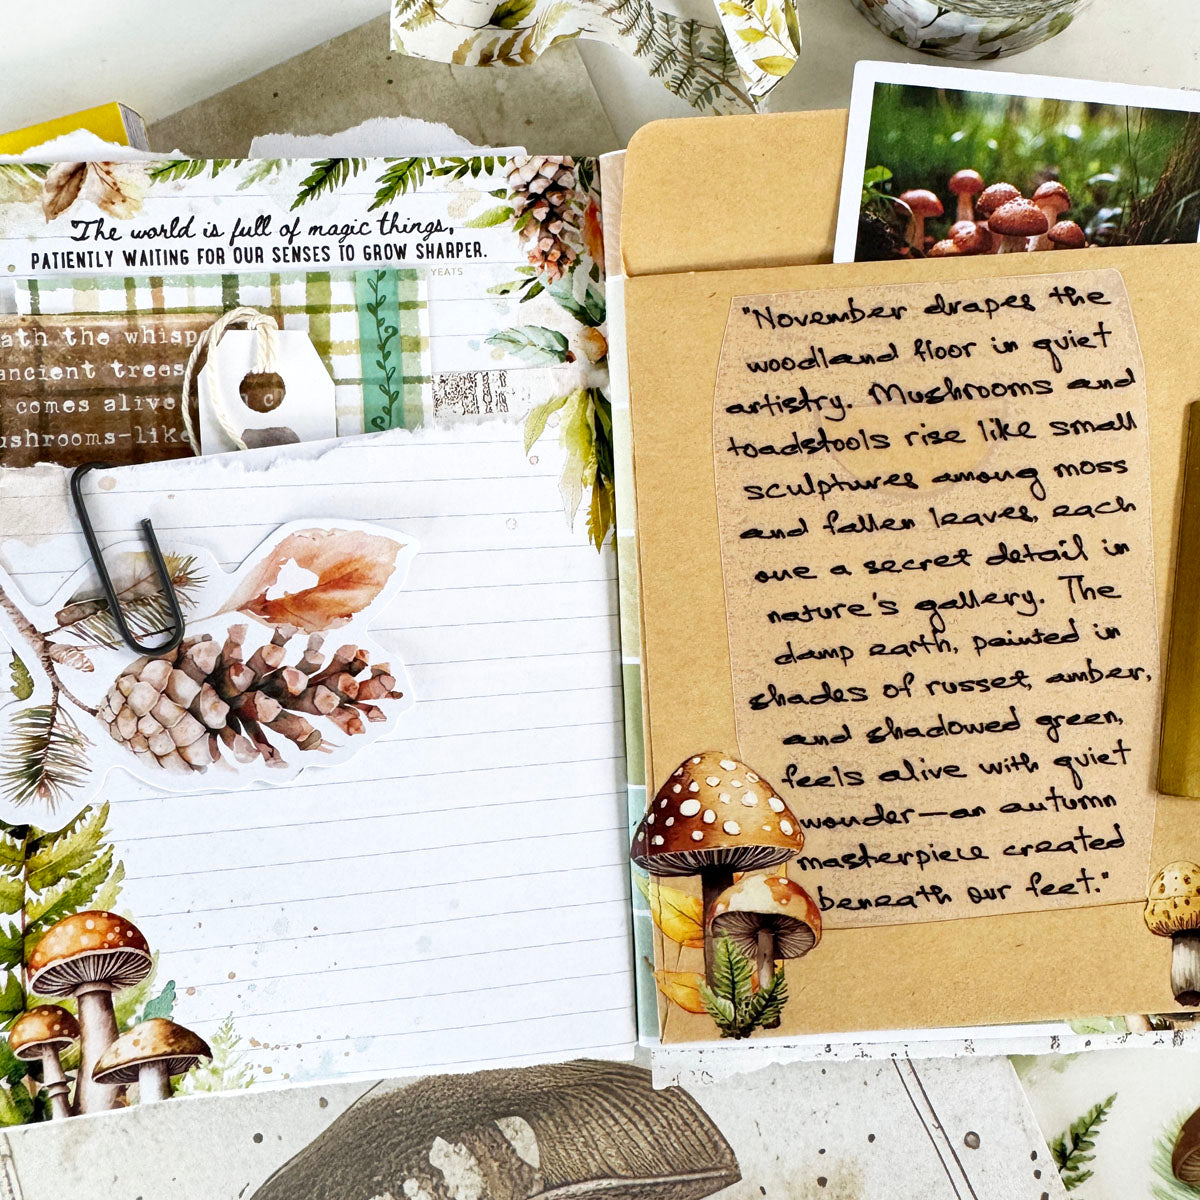 The world is full of magic things,
PATIENTLY WAITING FOR OUR SENSES TO GROW SHARPER.
YEATS
ath the whisp
ancient trees
comes alive
ushrooms—like
"November drapes the
woodland floor in quiet
artistry. Mushrooms and
toadstools rise like small
sculptures among moss
and fallen leaves, each
one a secret detail in
nature's gallery. The
damp earth, painted in
shades of russet, amber,
and shadowed green,
feels alive with quiet
wonder—an autumn
masterpiece created
beneath our feet."